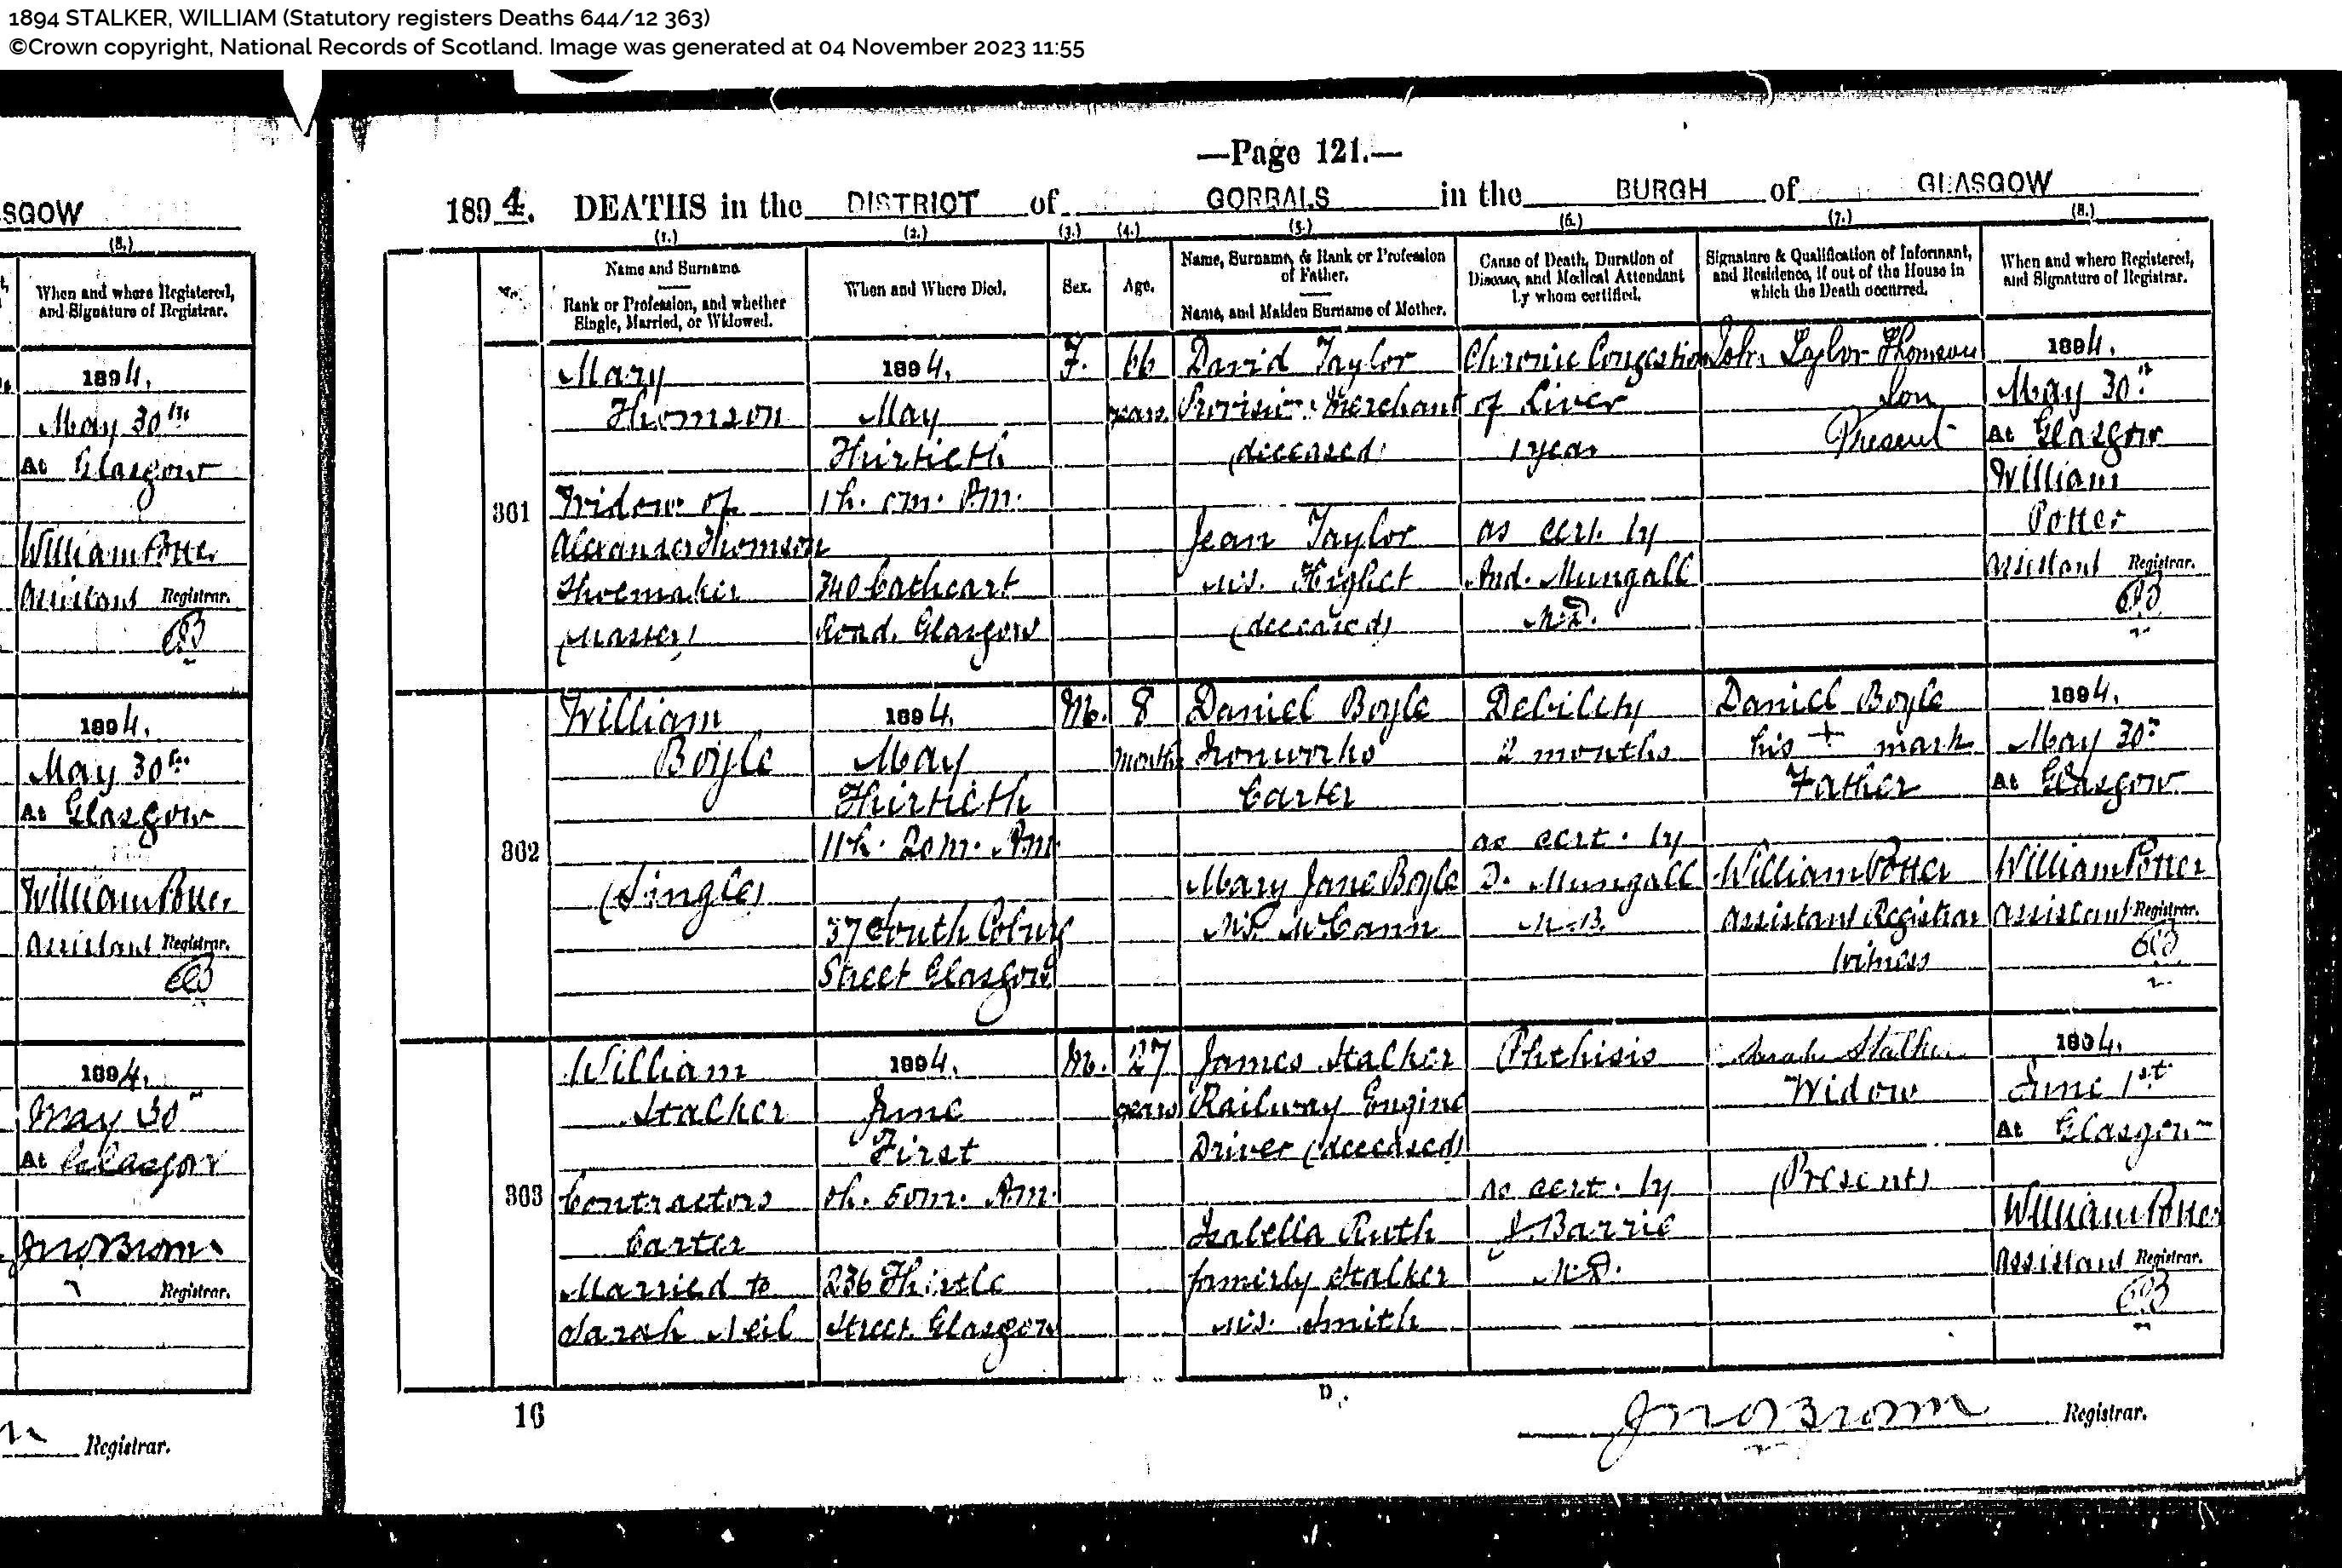 1894 STALKER, WILLIAM (Statutory registers Deaths 644/12 363)
©Crown copyright, National Records of Scotland. Image was generated at 04 November 2023 11:55
SGOW
(8.)
When and where Registered,
and Signature of Registrar.
1894.
May 30th
At Glasgow
William Potter
Assistant Registrar.
1894.
May 30th
At Glasgow
William Potter
Assistant Registrar.
1894.
May 30th
At Glasgow
Jno Brown
Registrar.
Registrar.
—Page 121.—
1894. DEATHS in the DISTRICT of GORBALS in the BURGH of GLASGOW
(1.) (2.) (3.) (4.) (5.) (6.) (7.) (8.)
No.
Name and Surname.
Rank or Profession, and whether
Single, Married, or Widowed.
When and Where Died.
Sex.
Age.
Name, Surname, & Rank or Profession
of Father.
Name, and Maiden Surname of Mother.
Cause of Death, Duration of
Disease, and Medical Attendant
by whom certified.
Signature & Qualification of Informant,
and Residence, if out of the House in
which the Death occurred.
When and where Registered,
and Signature of Registrar.
361
Mary
Thomson
Widow of
Alexander Thomson
Shoemaker
(Master)
1894.
May
Thirtieth
1h. 0m. P.M.
340 Cathcart
Road, Glasgow
F.
66
years
David Taylor
Provision Merchant
(deceased)
Jean Taylor
M.S. Highet
(deceased)
Chronic Congestion
of Liver
1 year
as cert. by
And. Mungall
M.D.
John Taylor Thomson
Son
Present
1894.
May 30th
At Glasgow
William
Potter
Assistant Registrar.
362
William
Boyle
(Single)
1894.
May
Thirtieth
11h. 20m. A.M.
37 South Coburg
Street Glasgow
M.
8
months
Daniel Boyle
Ironworks
Carter
Mary Jane Boyle
M.S. McCann
Debility
2 months
as cert. by
D. Mungall
M.B.
Daniel Boyle
his + mark
Father
William Potter
Assistant Registrar
Witness
1894.
May 30th
At Glasgow
William Potter
Assistant Registrar.
363
William
Stalker
Contractors
Carter
Married to
Sarah Neil
1894.
June
First
0h. 50m. A.M.
236 Thistle
Street Glasgow
M.
27
years
James Stalker
Railway Engine
Driver (deceased)
Isabella Ruth
formerly Stalker
M.S. Smith
Phthisis
as cert. by
J. Barrie
M.D.
Sarah Stalker
Widow
(Present)
1894.
June 1st
At Glasgow
William Potter
Assistant Registrar.
16
D
Jno Brown Registrar.